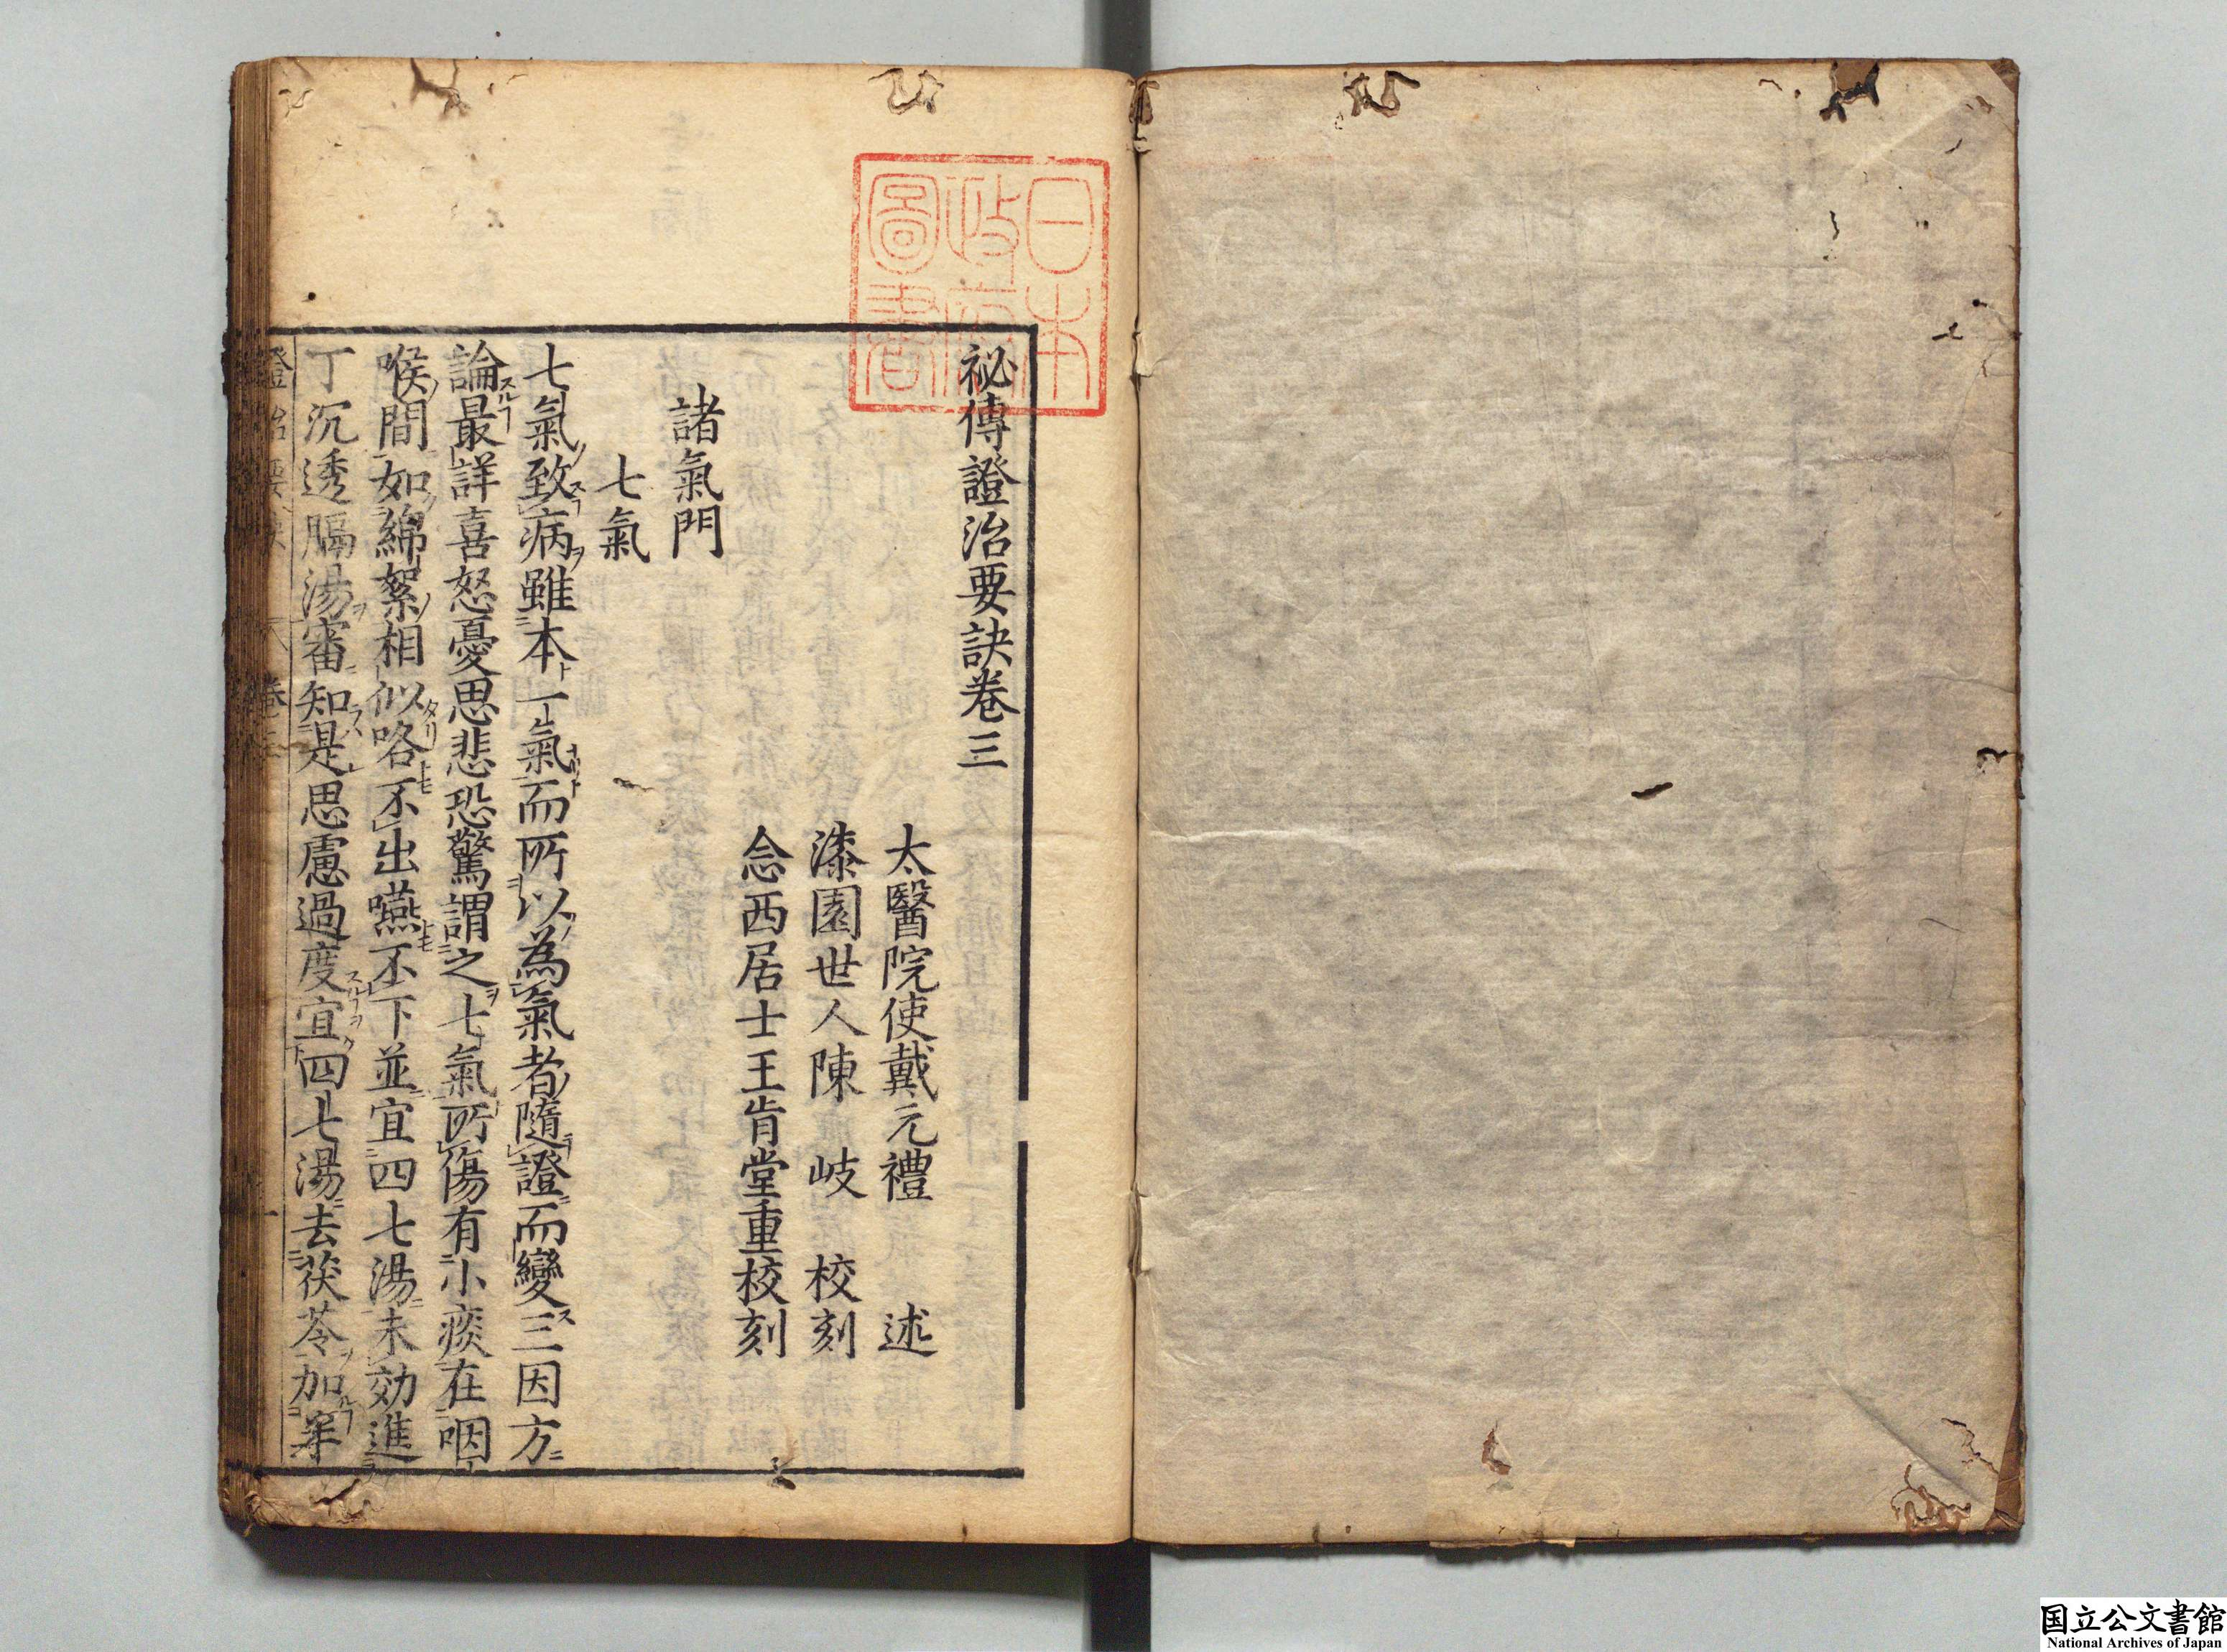 日本
政府
圖書
祕傳證治要訣卷三
太醫院使戴元禮 述
漆園世人陳 岐 校刻
念西居士王肯堂重校刻
諸氣門
七氣
七氣致病雖本一氣而所以為氣者隨證而變三因方
論最詳喜怒憂思悲恐驚謂之七氣所傷有小痰在咽
喉間如綿絮相似咯不出嚥不下並宜四七湯未効進
丁沉透膈湯審知是思慮過度宜四七湯去茯苓加
證治要訣 卷三 一
国立公文書館
National Archives of Japan